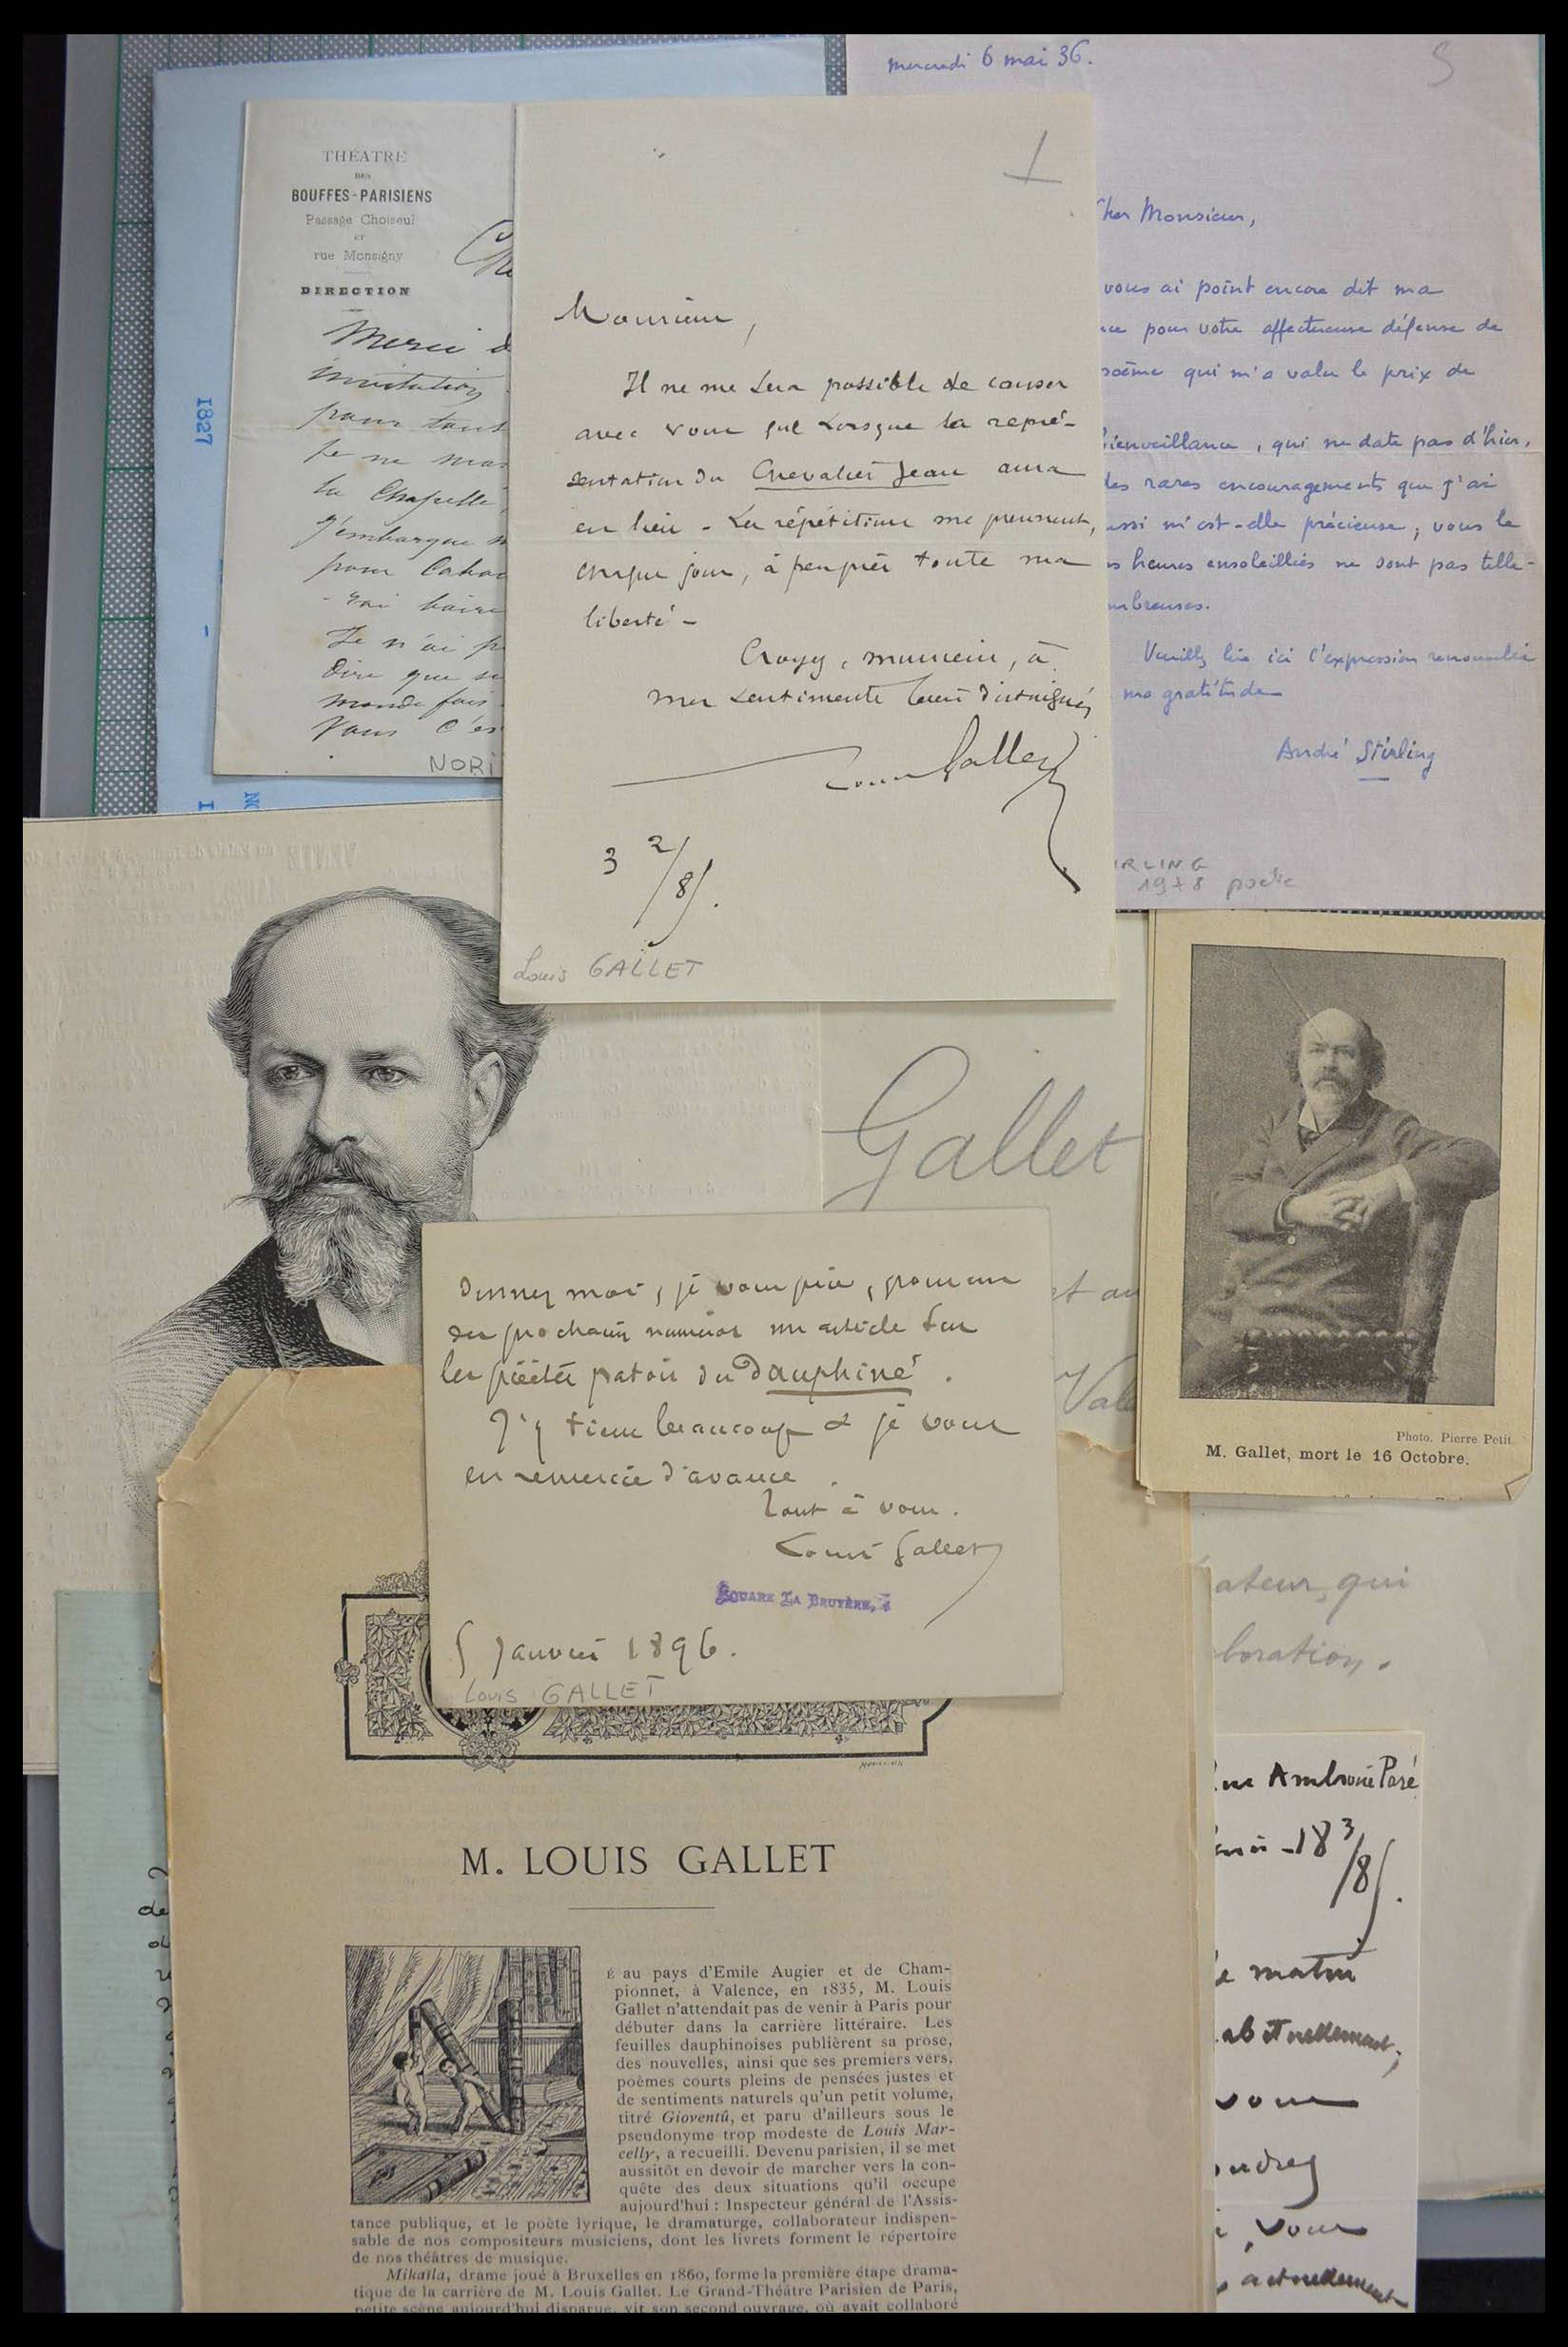 mercredi 6 mai 36.
S
THÉATRE
DES
BOUFFES-PARISIENS
Passage Choiseul
ET
rue Monsigny
DIRECTION
Merci d
invitation
pour tout
je ne
la Chapelle
J'embarque
pour
Je n'ai p
Dire que
monde fois
Vous C'es
NORI
1827
Monsieur,
Il ne me sera possible de causer
avec vous que lorsque la repré-
sentation du Chevalier Jean aura
eu lieu - Les répétitions me prennent,
chaque jour, à peu près toute ma
liberté -
Croyez, monsieur, à
mes sentiments bien distingués
Louis Gallet
3 2/85.
Louis GALLET
Cher Monsieur,
vous ai point encore dit ma
ce pour votre affectueuse défense de
poème qui m'a valu le prix de
bienveillance, qui ne date pas d'hier,
des rares encouragements que j'ai
ussi m'est-elle précieuse ; vous le
s heures ensoleillées ne sont pas telle-
mbreuses.
Veuillez lire ici l'expression renouvelée
ma gratitude
André Stirling
IRLING
1978 poète
Gallet
et au
Vale
Photo. Pierre Petit.
M. Gallet, mort le 16 Octobre.
Donnez moi, je vous prie, pour un
des prochains numéros un article sur
les poètes patois du Dauphiné.
J'y tiens beaucoup & je vous
en remercie d'avance.
Tout à vous.
Louis Gallet
SQUARE LA BRUYÈRE,
5 Janvier 1896.
Louis GALLET
ateur, qui
boration.
rue Ambroise Paré
Paris - 18 3/85.
le matin
abituellement,
vous
vous
actuellement
de
M. LOUIS GALLET
É au pays d'Emile Augier et de Cham-
pionnet, à Valence, en 1835, M. Louis
Gallet n'attendait pas de venir à Paris pour
débuter dans la carrière littéraire. Les
feuilles dauphinoises publièrent sa prose,
des nouvelles, ainsi que ses premiers vers,
poèmes courts pleins de pensées justes et
de sentiments naturels qu'un petit volume,
titré Gioventù, et paru d'ailleurs sous le
pseudonyme trop modeste de Louis Mar-
celly, a recueilli. Devenu parisien, il se met
aussitôt en devoir de marcher vers la con-
quête des deux situations qu'il occupe
aujourd'hui : Inspecteur général de l'Assis-
tance publique, et le poète lyrique, le dramaturge, collaborateur indispen-
sable de nos compositeurs musiciens, dont les livrets forment le répertoire
de nos théâtres de musique.
Mikaïla, drame joué à Bruxelles en 1860, forme la première étape drama-
tique de la carrière de M. Louis Gallet. Le Grand-Théâtre Parisien de Paris,
petite scène aujourd'hui disparue, vit son second ouvrage, où avait collaboré